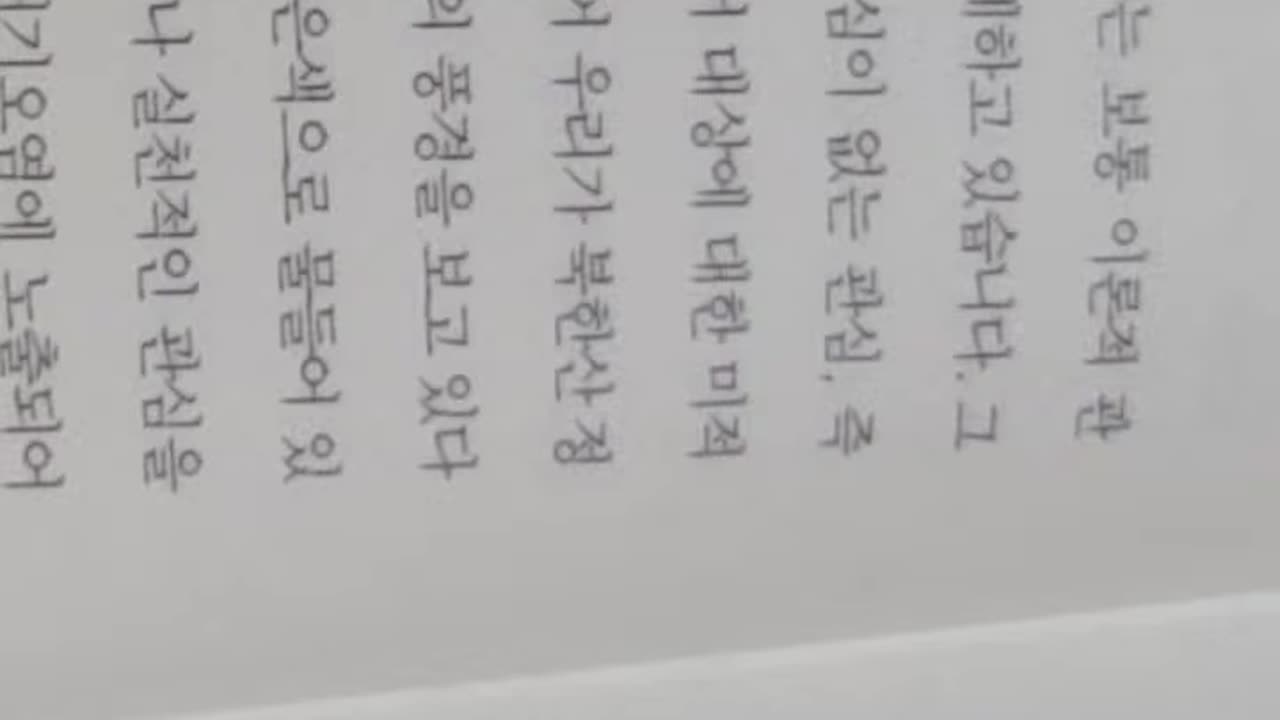 는 보통 이론적 관
하고 있습니다. 그
심이 없는 관심, 즉
대상에 대한 미적
우리가 북한산 정
풍경을 보고 있다
은색으로 물들어 있
나 실천적인 관심을
기오염에 노출되어